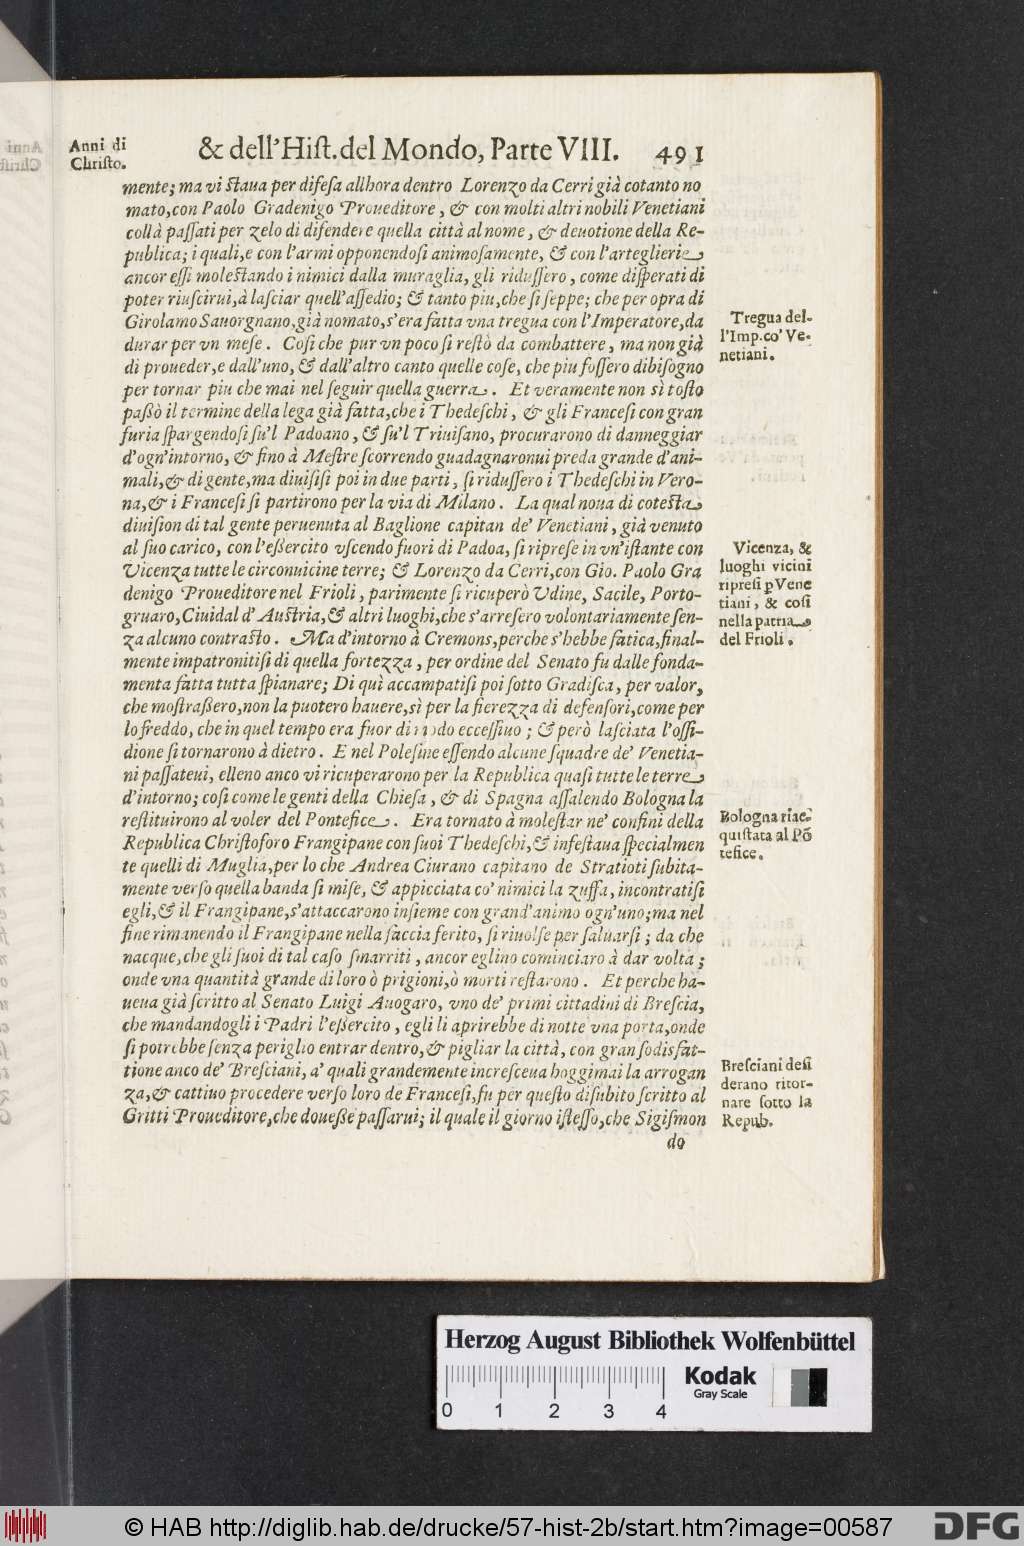 Anni di
Chriſto.
& dell'Hiſt. del Mondo, Parte VIII. 491
mente; ma vi ſtaua per difeſa allhora dentro Lorenzo da Cerri già cotanto no
mato, con Paolo Gradenigo Proueditore, & con molti altri nobili Venetiani
collà paſſati per zelo di difendere quella città al nome, & deuotione della Re-
publica; i quali, e con l'armi opponendoſi animoſamente, & con l'arteglierie
ancor eſſi moleſtando i nimici dalla muraglia, gli riduſſero, come diſperati di
poter riuſcirui, à laſciar quell'aſſedio; & tanto piu, che ſi ſeppe; che per opra di
Girolamo Sauorgnano, già nomato, s'era fatta vna tregua con l'Imperatore, da
durar per vn meſe. Coſi che pur vn poco ſi reſtò da combattere, ma non già
di proueder, e dall'uno, & dall'altro canto quelle coſe, che piu foſſero dibiſogno
per tornar piu che mai nel ſeguir quella guerra. Et veramente non sì toſto
paßò il termine della lega già fatta, che i Thedeſchi, & gli Franceſi con gran
furia ſpargendoſi ſu'l Padoano, & ſu'l Triuiſano, procurarono di danneggiar
d'ogn'intorno, & fino à Meſtre ſcorrendo guadagnaronui preda grande d'ani-
mali, & di gente, ma diuiſiſi poi in due parti, ſi riduſſero i Thedeſchi in Vero-
na, & i Franceſi ſi partirono per la via di Milano. La qual noua di coteſta
diuiſion di tal gente peruenuta al Baglione capitan de' Venetiani, già venuto
al ſuo carico, con l'eßercito vſcendo fuori di Padoa, ſi ripreſe in vn'iſtante con
Vicenza tutte le circonuicine terre; & Lorenzo da Cerri, con Gio. Paolo Gra
denigo Proueditore nel Frioli, parimente ſi ricuperò Vdine, Sacile, Porto-
gruaro, Ciuidal d'Auſtria, & altri luoghi, che s'arreſero volontariamente ſen-
za alcuno contraſto. Ma d'intorno à Cremons, perche s'hebbe fatica, final-
mente impatronitiſi di quella fortezza, per ordine del Senato fu dalle fonda-
menta fatta tutta ſpianare; Di quì accampatiſi poi ſotto Gradiſca, per valor,
che moſtraßero, non la puotero hauere, sì per la fierezza di defenſori, come per
lo freddo, che in quel tempo era fuor di modo ecceſſiuo; & però laſciata l'oſſi-
dione ſi tornarono à dietro. E nel Poleſine eſſendo alcune ſquadre de' Venetia-
ni paſſateui, elleno anco vi ricuperarono per la Republica quaſi tutte le terre
d'intorno; coſi come le genti della Chieſa, & di Spagna aſſalendo Bologna la
reſtituirono al voler del Pontefice. Era tornato à moleſtar ne' confini della
Republica Chriſtoforo Frangipane con ſuoi Thedeſchi, & infeſtaua ſpecialmen
te quelli di Muglia, per lo che Andrea Ciurano capitano de Stratioti ſubita-
mente verſo quella banda ſi miſe, & appicciata co' nimici la zuffa, incontratiſi
egli, & il Frangipane, s'attaccarono inſieme con grand'animo ogn'uno; ma nel
fine rimanendo il Frangipane nella faccia ferito, ſi riuolſe per ſaluarſi; da che
nacque, che gli ſuoi di tal caſo ſmarriti, ancor eglino cominciaro à dar volta;
onde vna quantità grande di loro ò prigioni, ò morti reſtarono. Et perche ha-
ueua già ſcritto al Senato Luigi Auogaro, vno de' primi cittadini di Breſcia,
che mandandogli i Padri l'eßercito, egli li aprirebbe di notte vna porta, onde
ſi potrebbe ſenza periglio entrar dentro, & pigliar la città, con gran ſodisfat-
tione anco de' Breſciani, a' quali grandemente increſceua hoggimai la arrogan
za, & cattiuo procedere verſo loro de Franceſi, fu per queſto diſubito ſcritto al
Gritti Proueditore, che doueße paſſarui; il quale il giorno iſteſſo, che Sigiſmon
do
Tregua del-
l'Imp. co' Ve-
netiani.
Vicenza, &
luoghi vicini
ripreſi ꝑ Vene
tiani, & coſi
nella patria
del Frioli.
Bologna riac-
quiſtata al Põ
tefice.
Breſciani deſi
derano ritor-
nare ſotto la
Repub.
Herzog August Bibliothek Wolfenbüttel
Kodak
Gray Scale
0 1 2 3 4
© HAB http://diglib.hab.de/drucke/57-hist-2b/start.htm?image=00587
DFG